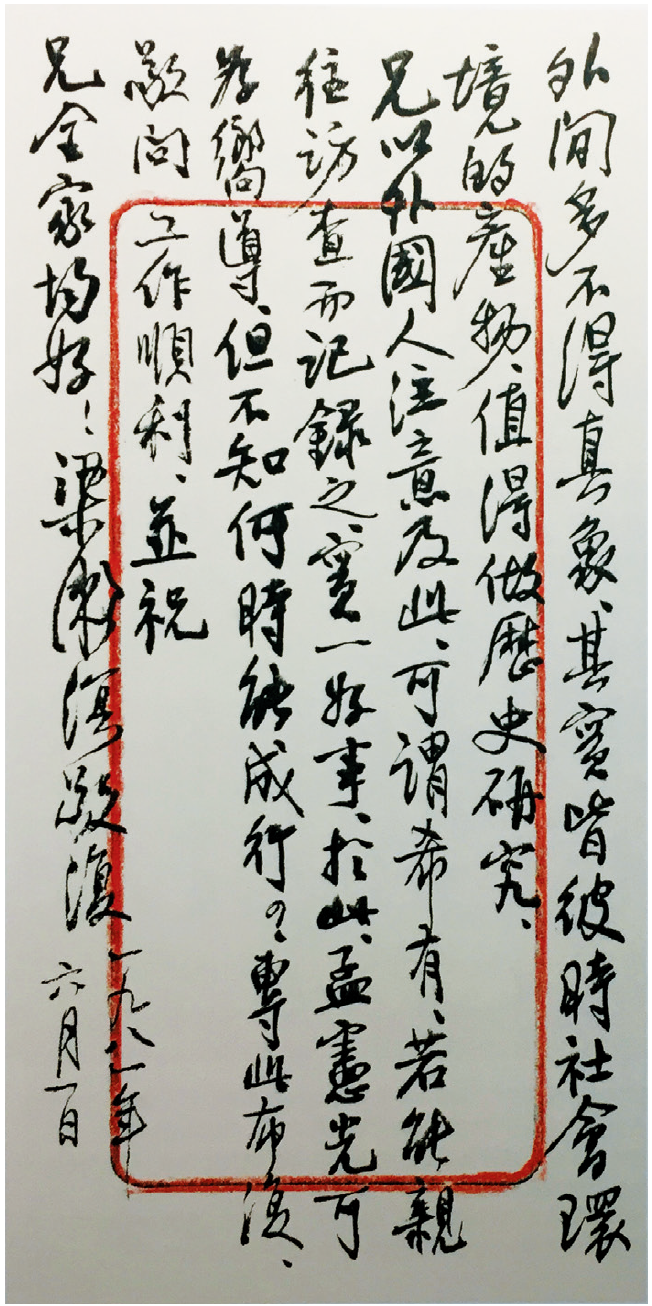 外间多不得真象、其實皆彼時社會環
境的產物、值得做歷史研究、
兄以外國人注意及此、可謂希有、若能親
往訪查而記錄之、實一好事、於此、孟憲光可
為嚮導、但不知何時能成行？、專此布復、
敬问 工作順利、並祝
兄全家均好！、梁漱溟敬復 一九八一年
六月一日